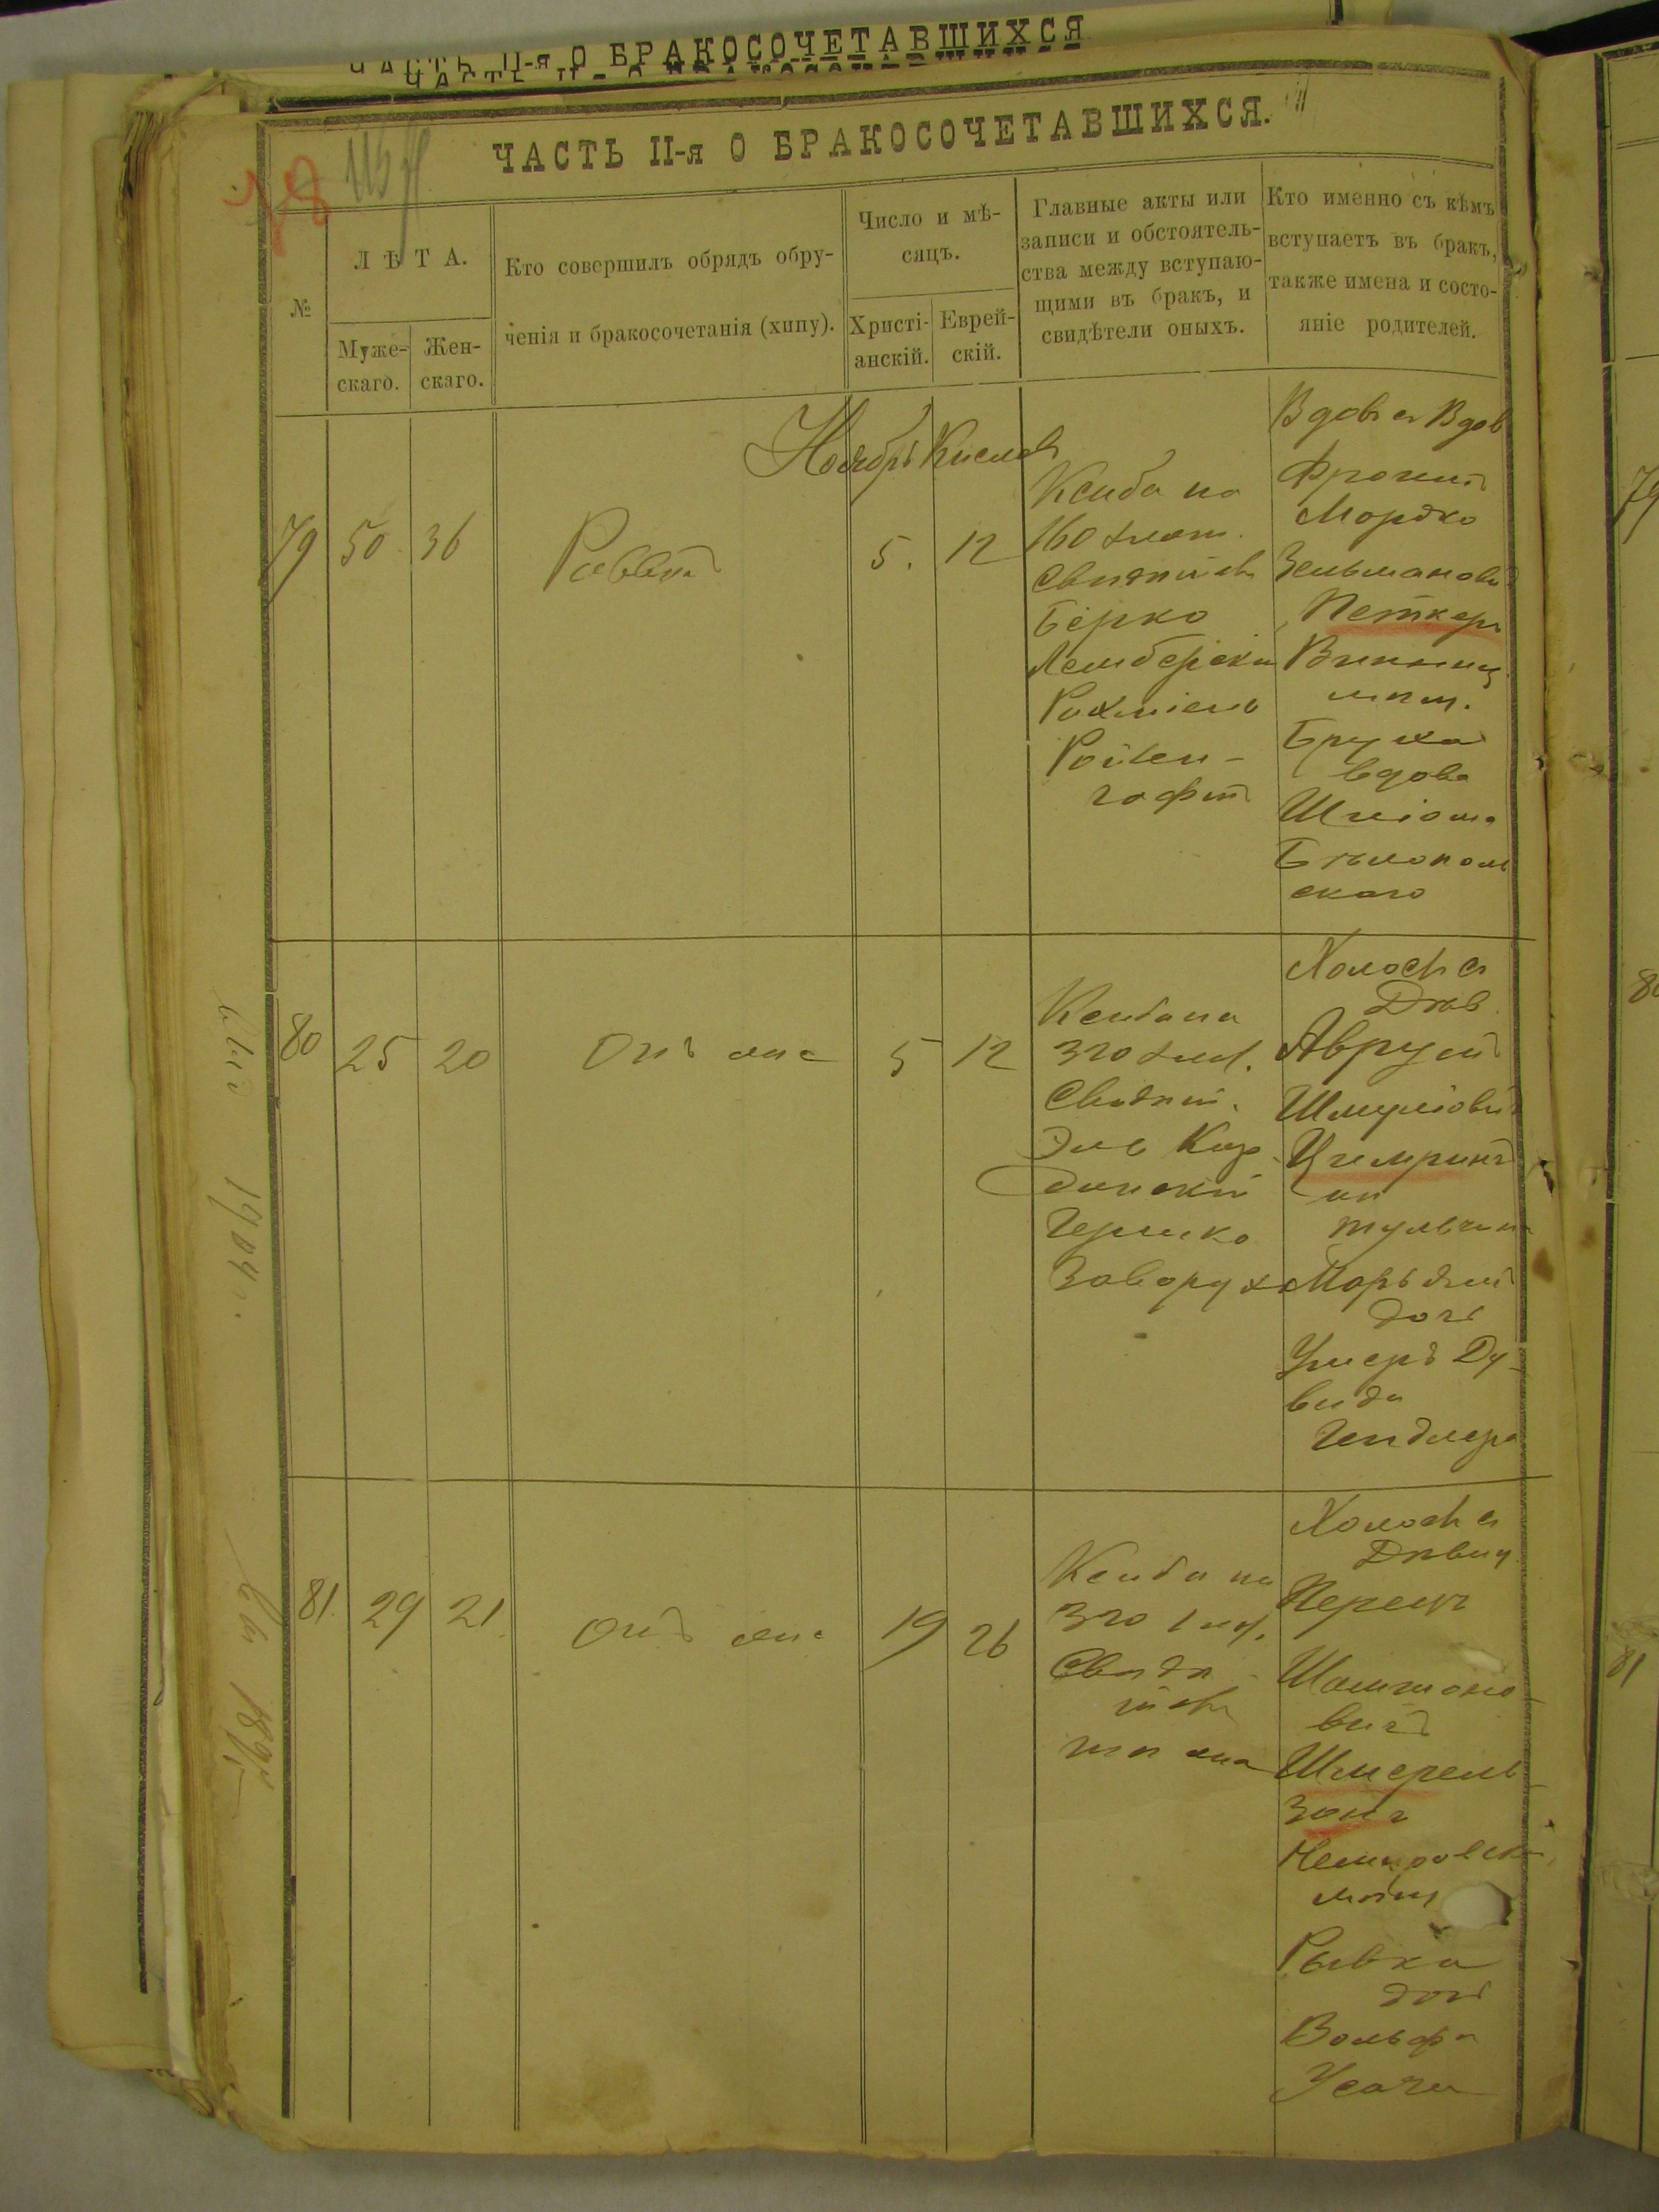 ЧАСТЬ II-я О БРАКОСОЧЕТАВШИХСЯ
ЧАСТЬ II-я О БРАКОСОЧЕТАВШИХСЯ.
78
115
№
ЛѢТА.
Муже-
скаго.
Жен-
скаго.
Кто совершилъ обрядъ обру-
ченія и бракосочетанія (хипу).
Число и мѣ-
сяцъ.
Христі-
анскій.
Еврей-
скій.
Главные акты или
записи и обстоятель-
ства между вступаю-
щими въ бракъ, и
свидѣтели оныхъ.
Кто именно съ кѣмъ
вступаетъ въ бракъ,
также имена и состо-
яніе родителей.
Ноябрь Кислев
79
50
36
Раввин
5.
12
Ксиба на
160 злот.
Берко
Лемберски
Рахміель
Ройзен-
Вдов с Вдов
Фроим
Мордко
Зельманов
Петкер
Винниц
мѣщ.
Бруха
вдова
Шліома
Бѣлополь
скаго
80
25
20
Онъ же
5
12
Ксиба на
320 злот.
Свидѣт.
Эль Кор
данскій
Гершко
Заворуха
Холост с
Дѣв.
Аврум
Шмулiович
Цимринг
тульчин
дочь
Умеръ Ду-
вида
Гендлера
81.
29
21.
Онъ же
19
26
Ксиба на
320 злот.
Свидѣ
тѣ же
Холост с
Дѣвиц
Перецъ
вичъ
Шмерель-
зонъ
Немировски
мѣщ
Рывка
дочь
Вольфа
Усача
1904 г.
79
80
81